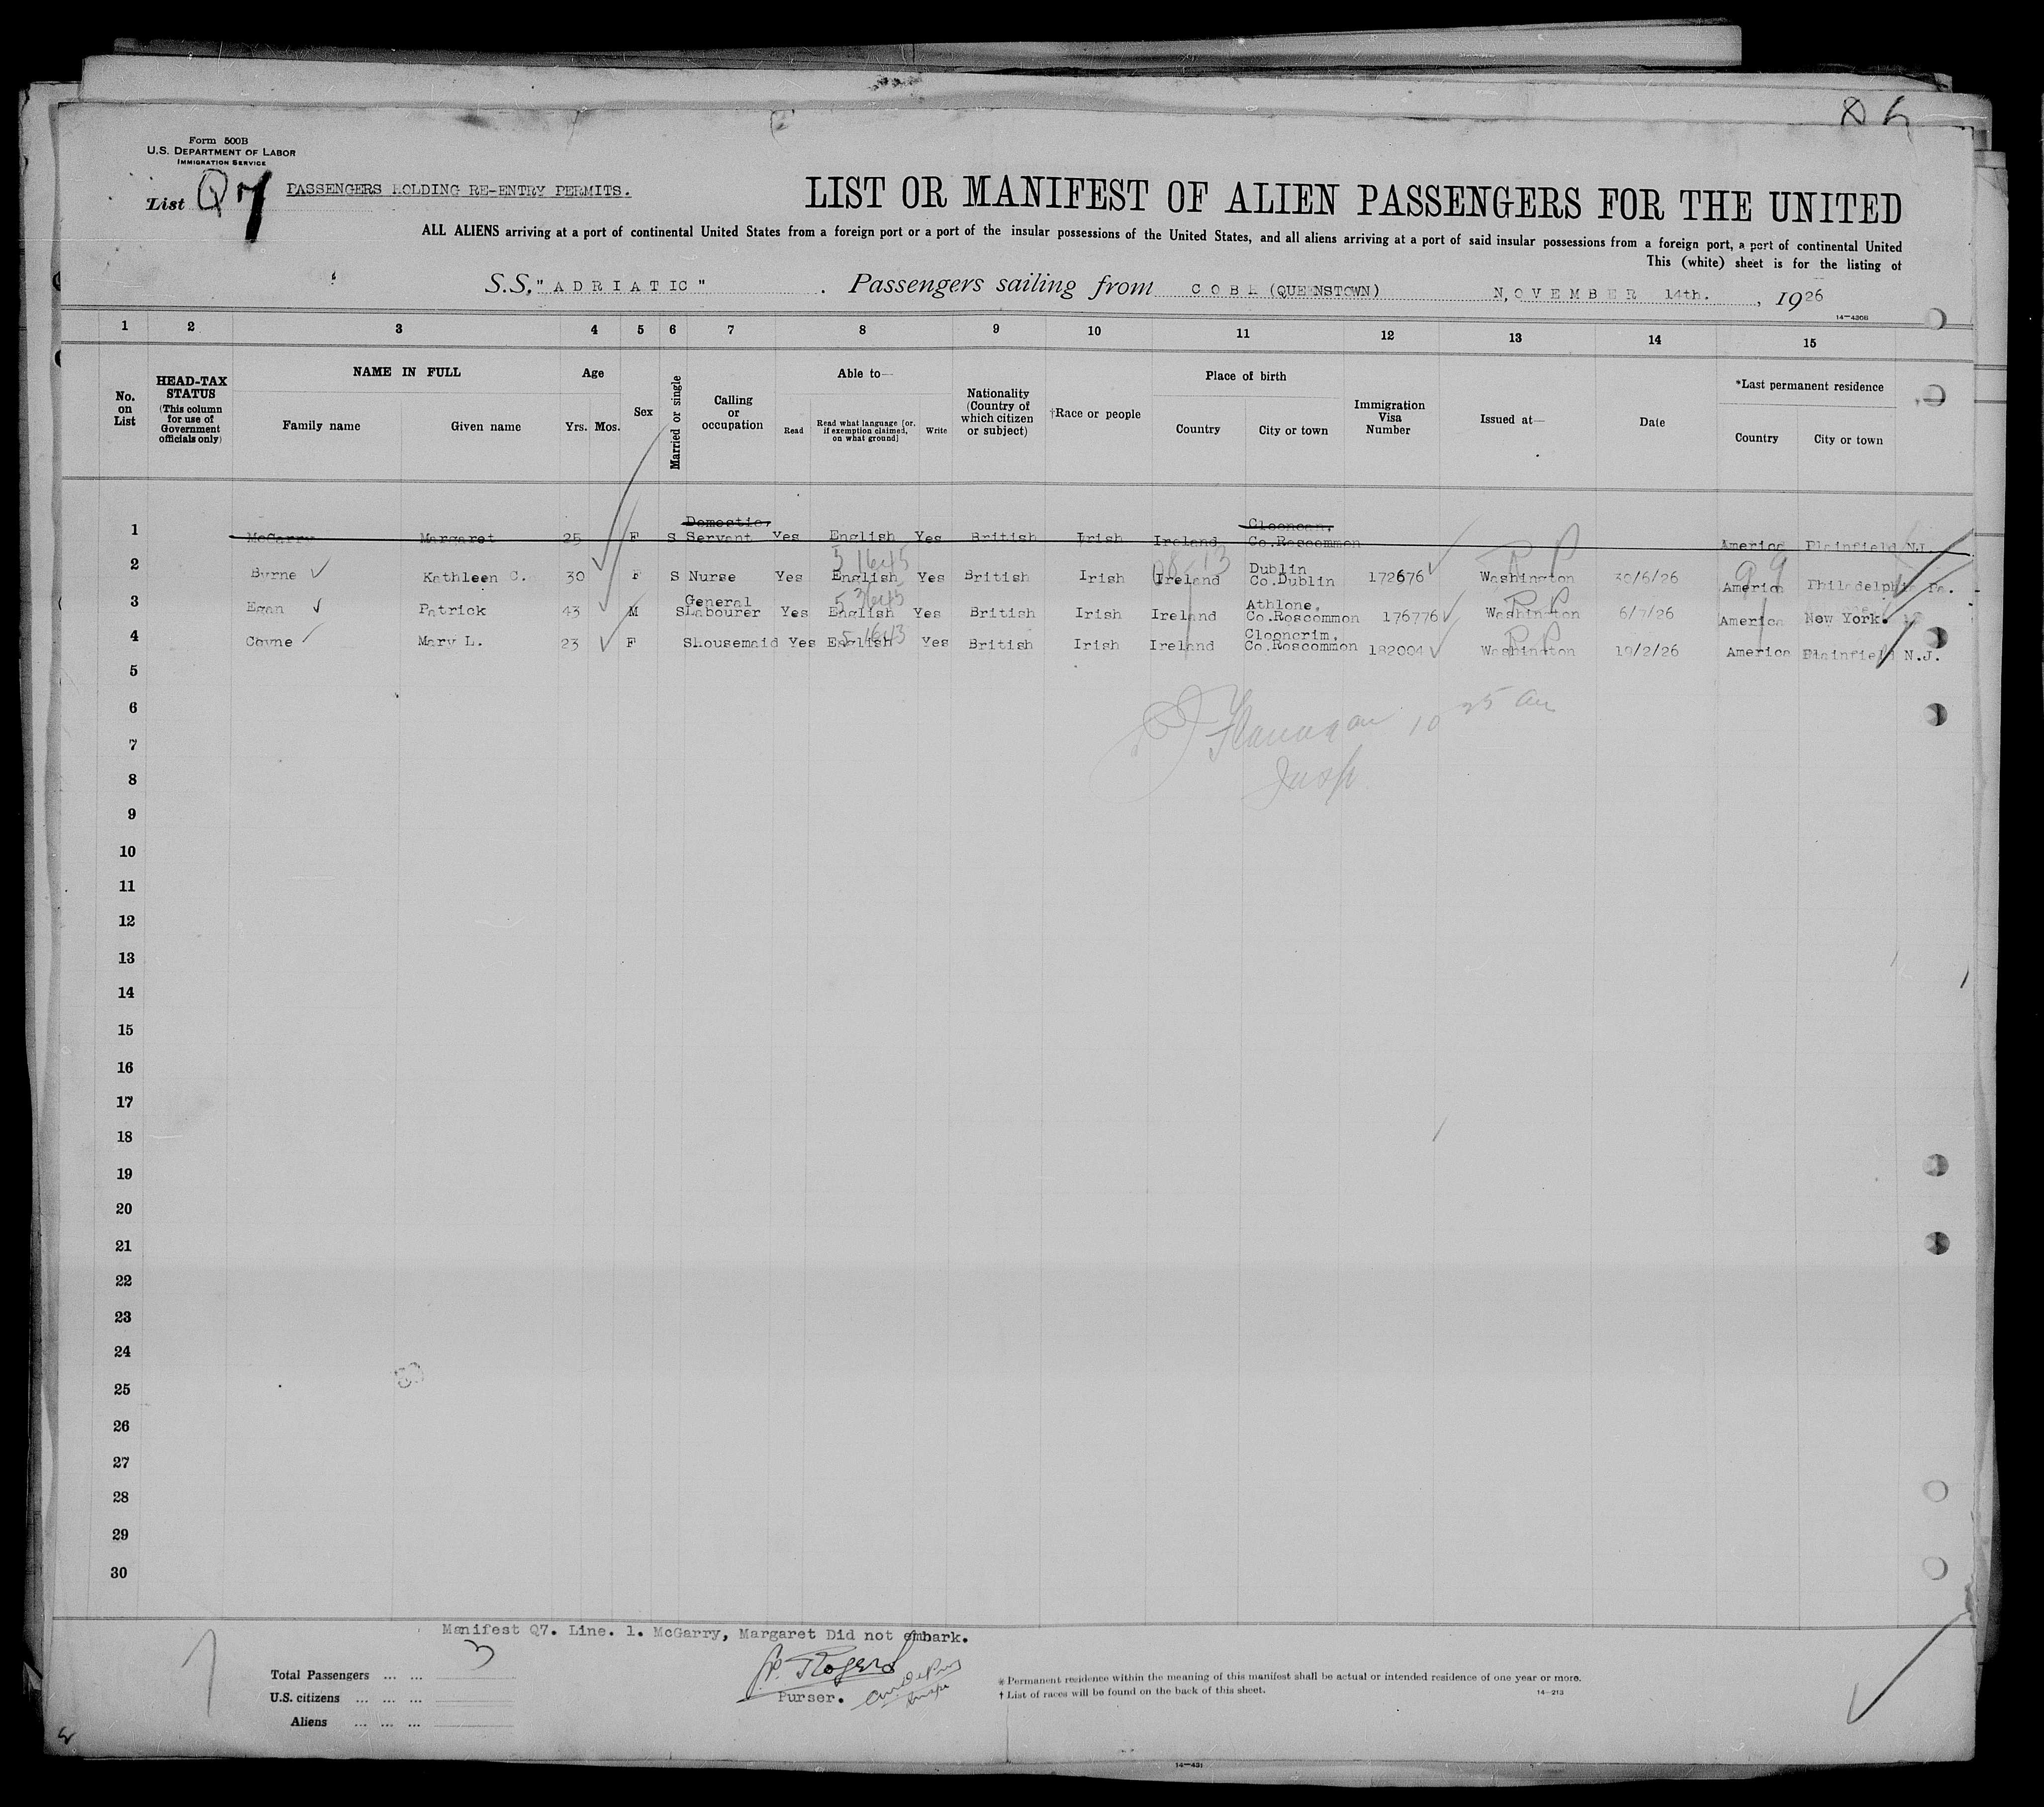 86
Form 500B
U.S. DEPARTMENT OF LABOR
IMMIGRATION SERVICE
List Q7 PASSENGERS HOLDING RE-ENTRY PERMITS.
LIST OR MANIFEST OF ALIEN PASSENGERS FOR THE UNITED
ALL ALIENS arriving at a port of continental United States from a foreign port or a port of the insular possessions of the United States, and all aliens arriving at a port of said insular possessions from a foreign port, a port of continental United
This (white) sheet is for the listing of
S.S. "ADRIATIC" Passengers sailing from COBH (QUEENSTOWN) NOVEMBER 14th., 1926
14—430B
1 2 3 4 5 6 7 8 9 10 11 12 13 14 15
No. on List
HEAD-TAX STATUS (This column for use of Government officials only)
NAME IN FULL
Family name Given name
Age
Yrs. Mos.
Sex
Married or single
Calling or occupation
Able to—
Read Read what language [or, if exemption claimed, on what ground] Write
Nationality (Country of which citizen or subject)
†Race or people
Place of birth
Country City or town
Immigration Visa Number
Issued at—
Date
*Last permanent residence
Country City or town
1 McGarry Margaret 25 F S Domestic, Servant Yes English Yes British Irish Ireland Clooncan, Co.Roscommon America Plainfield N.J.
2 Byrne Kathleen C. 30 F S Nurse Yes English Yes British Irish Ireland Dublin Co.Dublin 172676 Washington 30/6/26 America Philadelphia Pa.
3 Egan Patrick 43 M S General Labourer Yes English Yes British Irish Ireland Athlone, Co.Roscommon 176776 Washington 6/7/26 America New York.
4 Coyne Mary L. 23 F S housemaid Yes English Yes British Irish Ireland Clooncrim, Co.Roscommon 182004 Washington 19/2/26 America Plainfield N.J.
5
6
7
8
9
10
11
12
13
14
15
16
17
18
19
20
21
22
23
24
25
26
27
28
29
30
Flanagan 10 25 am
Insp
Manifest Q7. Line. 1. McGarry, Margaret Did not embark.
Total Passengers ... ... 3
U.S. citizens ... ... ...
Aliens ... ... ...
Rogers
Purser.
* Permanent residence within the meaning of this manifest shall be actual or intended residence of one year or more.
† List of races will be found on the back of this sheet.
14—213
14—431